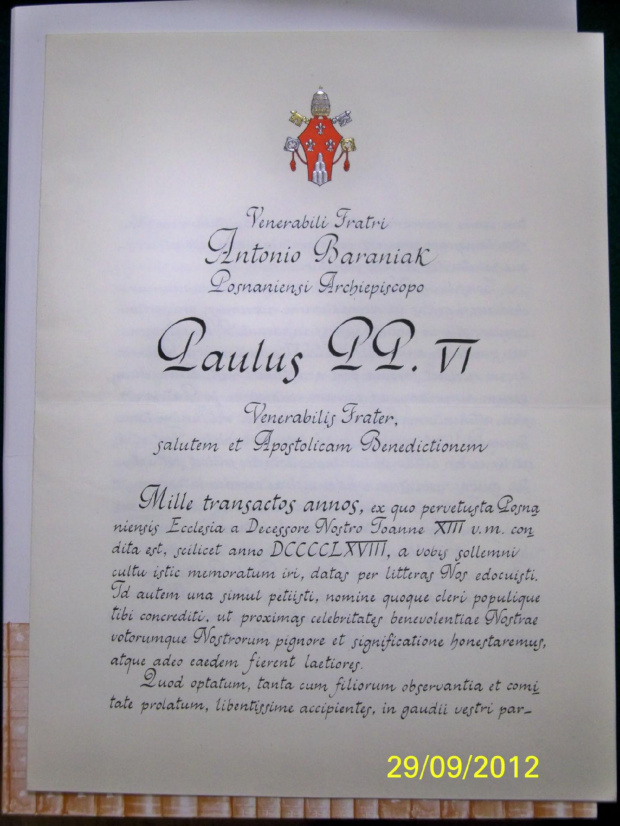 Venerabili Fratri
Antonio Baraniak
Posnaniensi Archiepiscopo
Paulus PP. VI
Venerabilis Frater,
salutem et Apostolicam Benedictionem
Mille transactos annos, ex quo pervetusta Posna
niensis Ecclesia a Decessore Nostro Ioanne XIII v.m. con
dita est, scilicet anno DCCCCLXVIII, a vobis sollemni
cultu istic memoratum iri, datas per litteras Nos edocuisti.
Id autem una simul petiisti, nomine quoque cleri populique
tibi concrediti, ut proximas celebritates benevolentiae Nostrae
votorumque Nostrorum pignore et significatione honestaremus,
atque adeo eaedem fierent laetiores.
Quod optatum, tanta cum filiorum observantia et comi
tate prolatum, libentissime accipientes, in gaudii vestri par-
29/09/2012